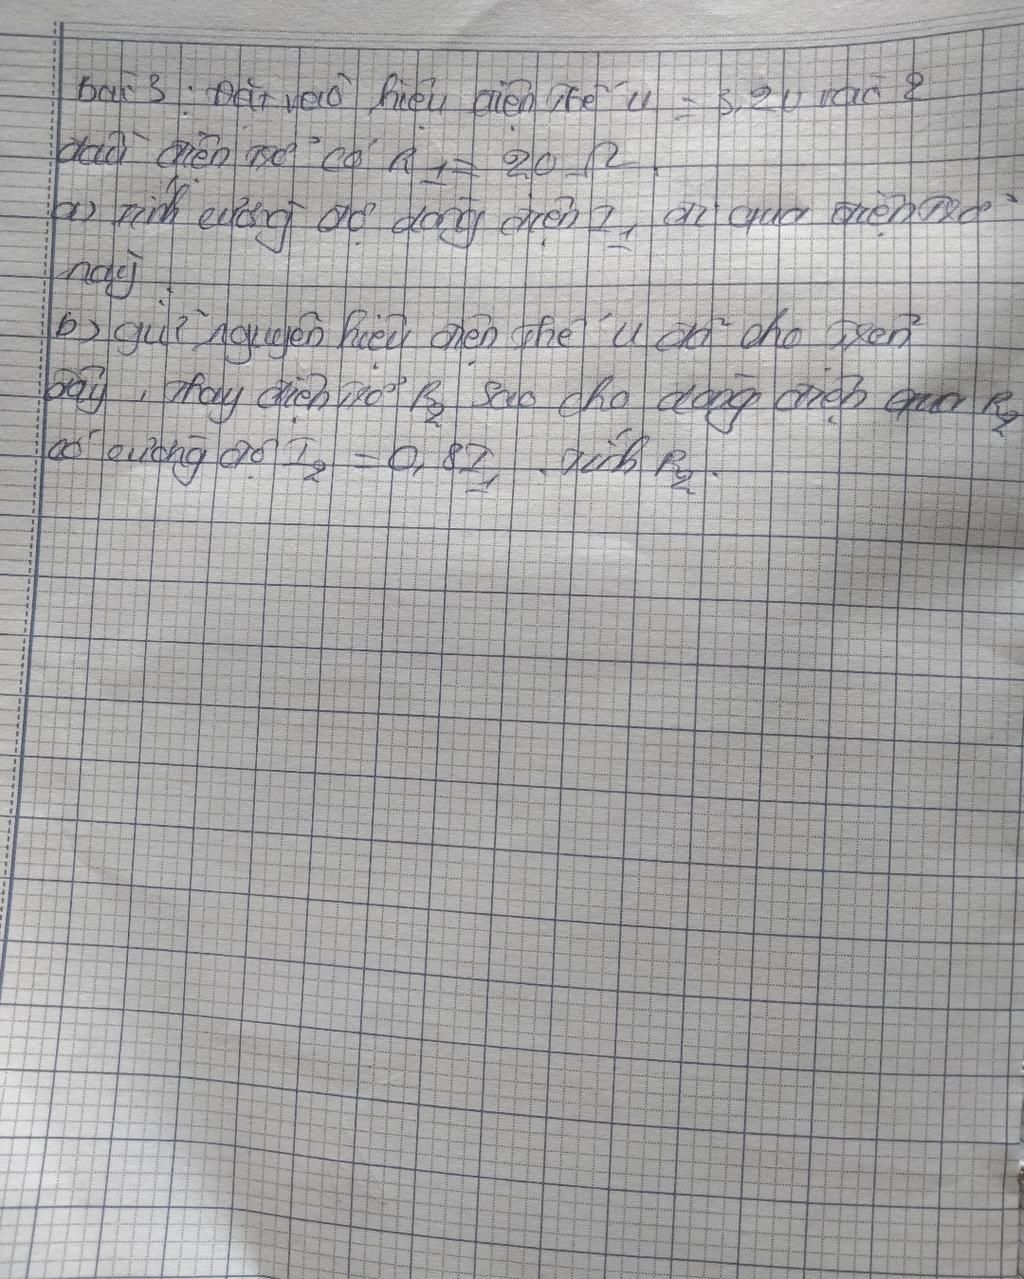 bài 3: Đặt vào hiệu điện thế U = 3,2V vào 2
đầu điện trở có R1 = 20 Ω.
a) tính cường độ dòng điện I1 đi qua điện trở
này.
b) giữ nguyên hiệu điện thế U đã cho trên
đây, thay điện trở R2 sao cho dòng điện qua R2
có cường độ I2 = 0,8I1. tính R2.